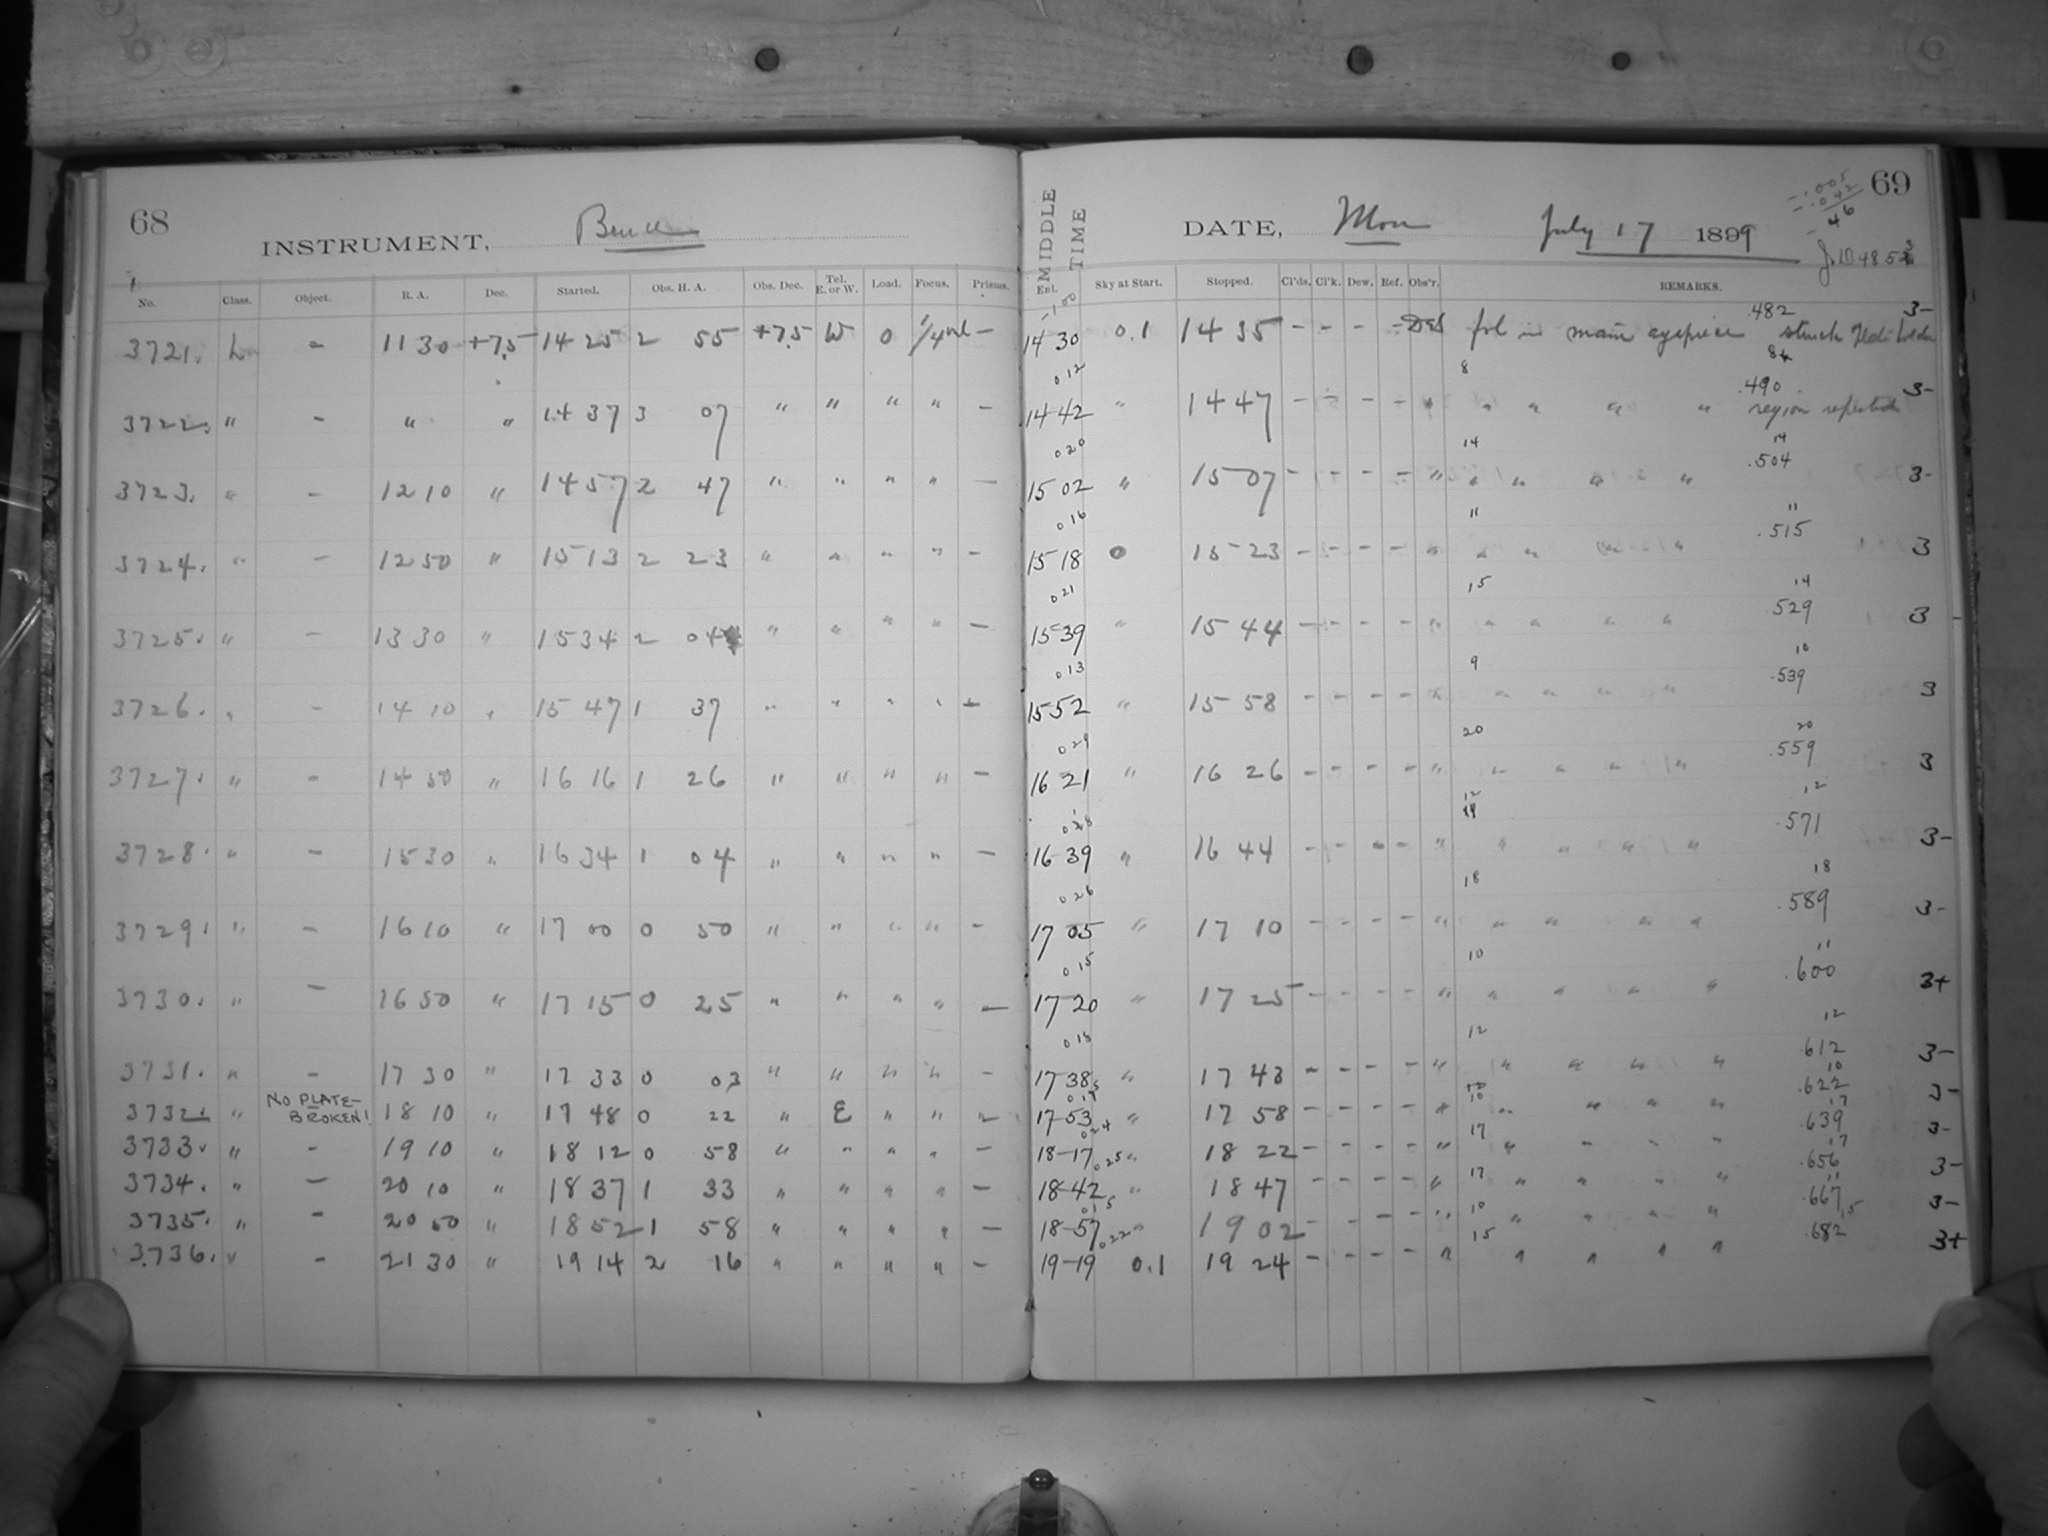 68
INSTRUMENT, Bruce
No. Class. Object. R. A. Dec. Started. Obs. H. A. Obs. Dec. Tel. E. or W. Load. Focus. Prisms.
3721. L - 11 30 +7.5 14 25 2 55 +7.5 W 0 -
3722. " - " " 14 37 3 07 " " " " -
3723. " - 12 10 " 14 57 2 47 " " " " -
3724. " - 12 50 " 15 13 2 23 " " " " -
3725. " - 13 30 " 15 34 2 04 " " " " -
3726. " - 14 10 " 15 47 1 37 " " " " -
3727. " - 14 50 " 16 16 1 26 " " " " -
3728. " - 15 30 " 16 34 1 04 " " " " -
3729. " - 16 10 " 17 00 0 50 " " " " -
3730. " - 16 50 " 17 15 0 25 " " " " -
3731. " - 17 30 " 17 33 0 03 " " " " -
3732. " NO PLATE- BROKEN! 18 10 " 17 48 0 22 " E " " "
3733. " - 19 10 " 18 12 0 58 " " " " -
3734. " - 20 10 " 18 37 1 33 " " " " -
3735. " - 20 50 " 18 52 1 58 " " " " -
3736. " - 21 30 " 19 14 2 16 " " " " -
69
MIDDLE TIME
DATE, Mon July 17 1899
-.005
-.042
46
Ext. Sky at Start. Stopped. Cl'ds. Cl'k. Dew. Ref. Obs'r. REMARKS.
482 3-
14 30 0.1 14 35 - - - - fol in main eyepiece struck
012 8
.490 3-
14 42 " 14 47 - - - - " " " " " region repeated
020 14 14
.504
15 02 " 15 07 - - - - " " " " " 3-
016 11 11
.515
15 18 0 15 23 - - - - " " " " " 3
021 15 14
.529
15 39 " 15 44 - - - - " " " " " 3
013 9 10
.539
15 52 " 15 58 - - - - " " " " " 3
029 20 20
.559
16 21 " 16 26 - - - - " " " " " 3
12 12
.571
16 39 " 16 44 - - - - " " " " " 3-
026 18 18
.589
17 05 " 17 10 - - - - " " " " " 3-
015 10 11
.600
17 20 " 17 25 - - - - " " " " " 3+
018 12 12
.612
17 38 " 17 43 - - - - " " " " " 3-
10 10
.622
17-53 " 17 58 - - - - " " " " " 3-
024 17 17
.639
18-17 " 18 22 - - - - " " " " " 3-
025 17 17
.656
18-42 " 18 47 - - - - " " " " " 3-
015 10 11
.667
18-57 " 19 02 - - - - " " " " " 3-
022 15 15
.682
19-19 0.1 19 24 - - - - " " " " " 3+